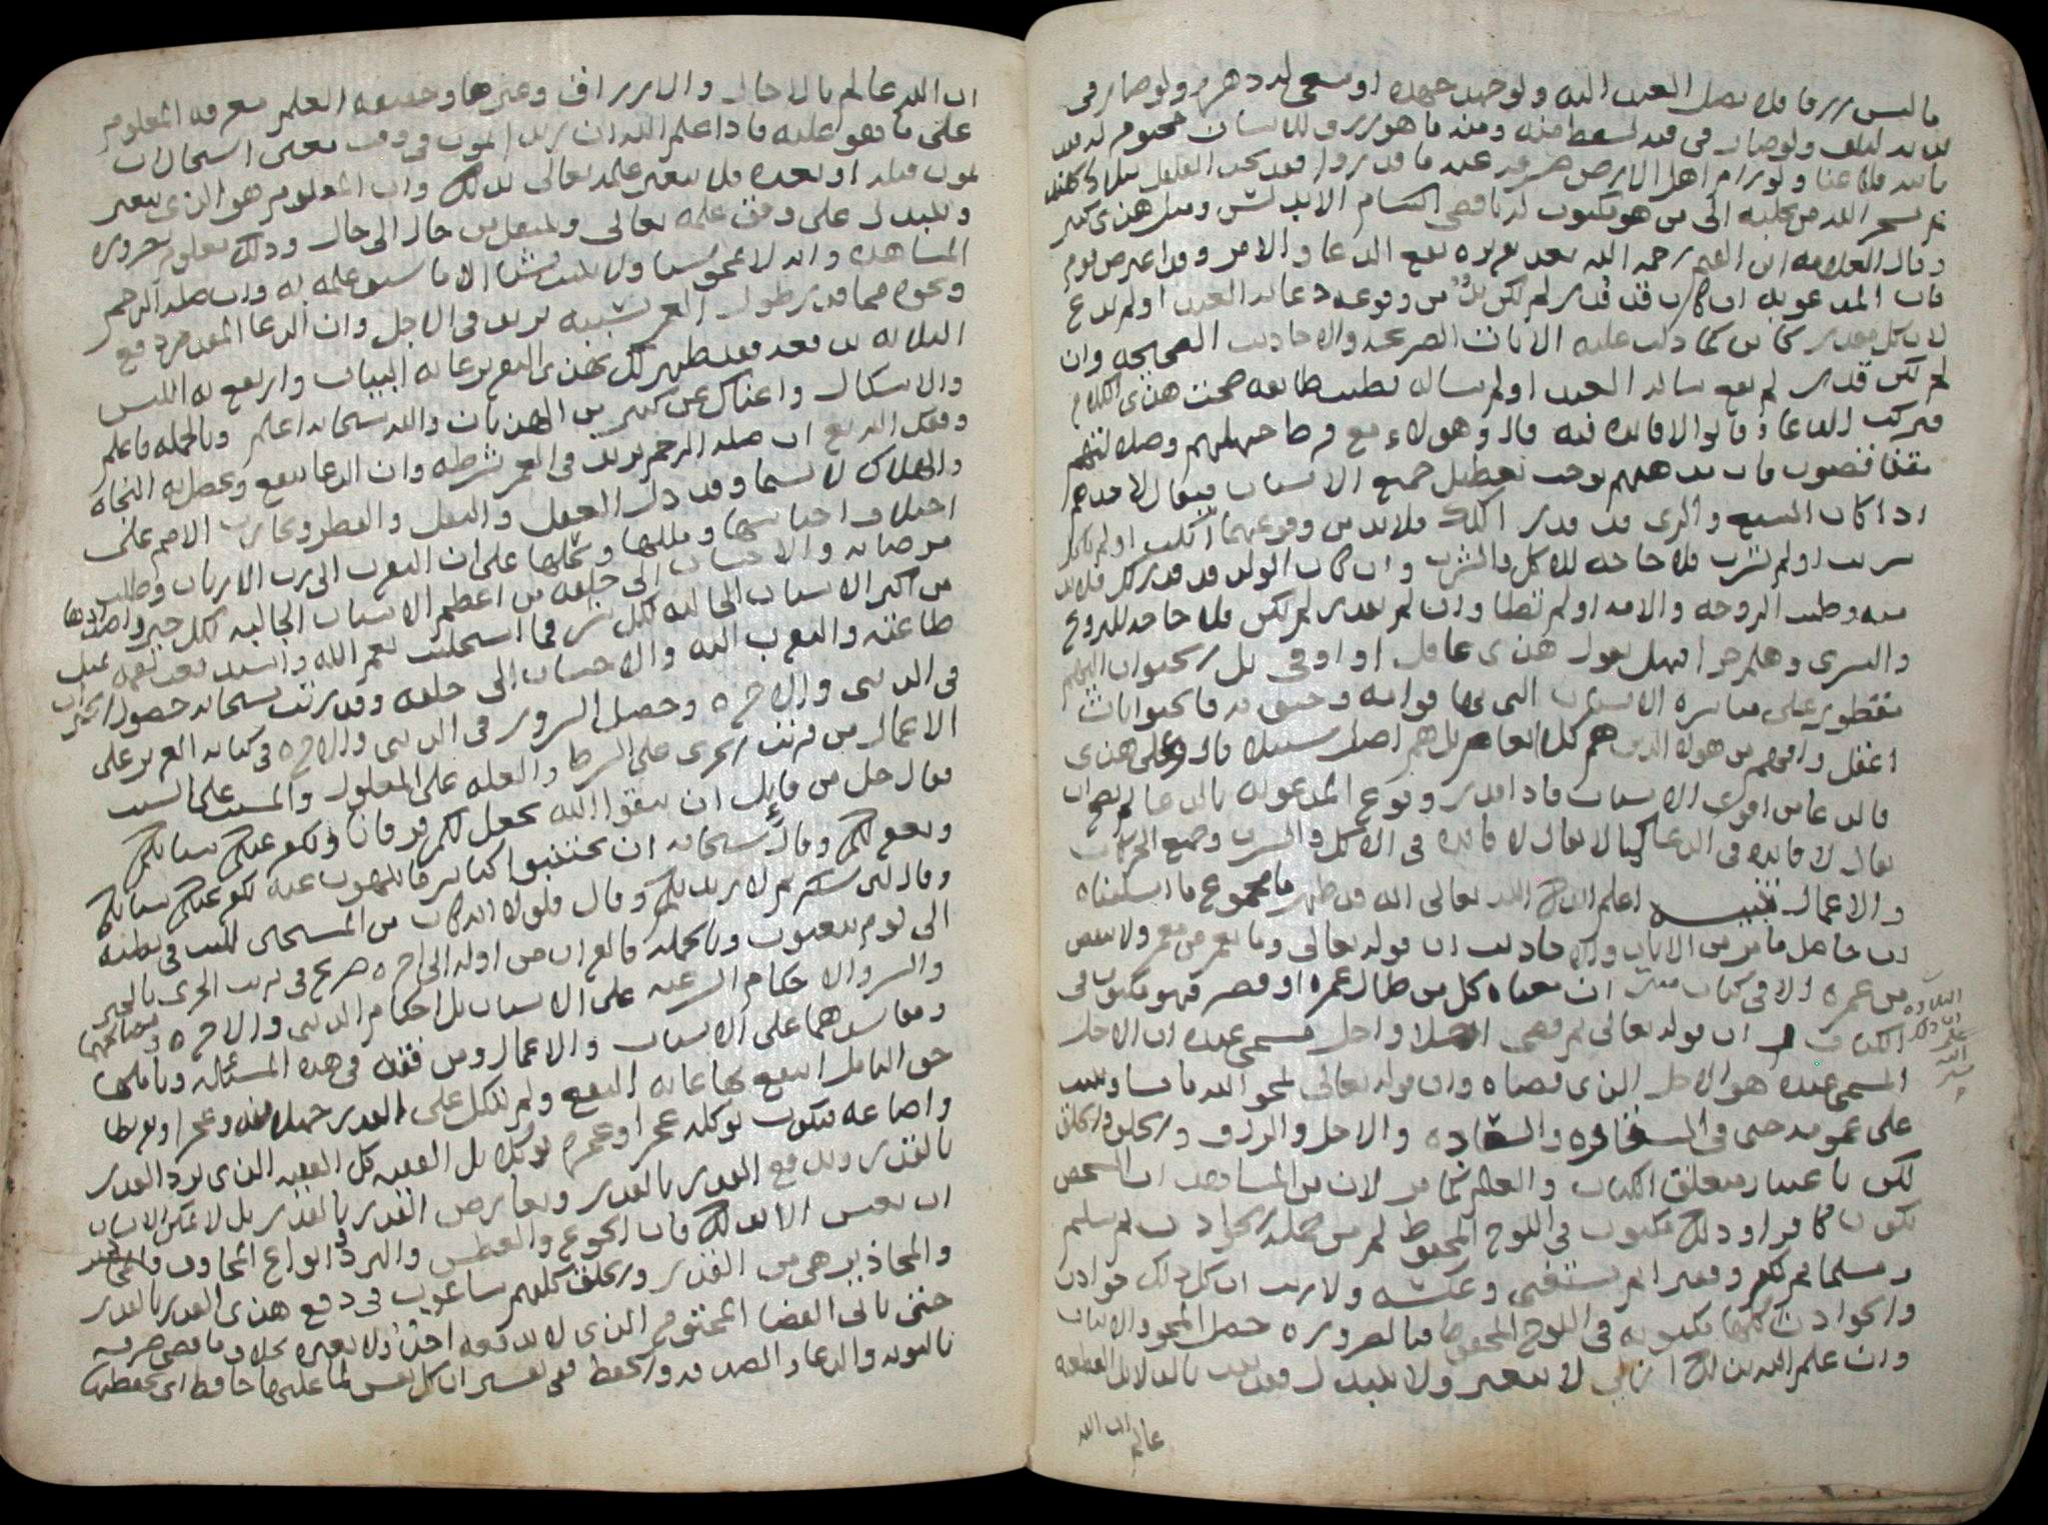 ما ليس رزقا فلا يصل العبد اليه ولو جهد جهده او سعى له دهره ولو صار في
لا بد ولو صار في فيه لسقط منه ومنه ما هو رزق للانسان محتوم لا بد
ياتيه فلا عنا ولو رام اهل الارض صرفه عنه ما قدروا فقد تجد
ثم يسخر الله من يجلبه الى من هو مكتوب له باقصى الشام الاندلس ومثل هذى كثير
وقال العلامه ابن القيم رحمه الله بعد تقريره نفع الدعا والامر وقد اعترض قوم
فان المدعو به ان كان قد قدر لم يكن بد من وقوعه دعا به العبد او لم يدع
لان كل مقدر كاين كما دلت عليه الايات الصريحه والاحاديث الصحيحه وان
لم يكن قدر لم يقع ساله العبد او لم يساله فظنت طايفه صحت هذى الكلام
فتركت الدعا وقالوا لا فايده فيه قال وهولاء مع فرط جهلهم وضلالتهم
متناقضون فان مذهبهم يوجب تعطيل جميع الاسباب فيقال لاحدهم
اذا كان الشبع والري قد قدر لك فلا بد من وقوعهما اكلت او لم تاكل
شربت او لم تشرب فلا حاجه للاكل والشرب وان كان الولد قد قدر لك فلا بد
منه وطيت الزوجه والامه او لم تطا وان لم يقدر لم يكن فلا حاجه للتزوج
والتسرى وهلم جرا فهل يقول هذى عاقل او ادمى بل الحيوان البهيم
مفطور على مباشره الاسباب التي بها قوامه وحيوته فالحيوانات
اعقل وافهم من هولا الذين هم كالانعام بل هم اضل سبيلا قال وعلى هذى
فالدعا من اقوى الاسباب فاذا قدر وقوع المدعو به بالدعا لم يصح ان
يقال لا فايده في الدعا كما لا يقال لا فايده في الاكل والشرب وجميع الحركات
والاعمال تنبيه اعلم الله تعالى انه قد ظهر ما مجموع ما اسلفناه
ان حاصل ما مر من الايات والاحاديث ان قوله تعالى وما يعمر من معمر ولا ينقص
من عمره الا في كتاب مبين ان معناه كل من طال عمره او قصر فهو مكتوب في
الكتاب وان قوله تعالى ثم قضى اجلا واجل مسمى عنده ان الاجل
المسمى عنده هو الاجل الذى قضاه وان قوله تعالى يمحو الله ما يشا ويثبت
على عمومه حتى في السعاده والشقاده والاجل والرزق والخلق والخلق
لكن باعتبار متعلق الكتاب والعلم كما مر لان من المشاهد ان الشخص
يكون كافرا وذلك مكتوب في اللوح المحفوظ لم من جمله الحوادث ثم يسلم
ومسلما ثم يكفر وفقيرا ثم يستغنى وعكسه ولا ريب ان كل ذلك حوادث
والحوادث كلها مكتوبه في اللوح المحفوظ فبالضروره حصل المحو والاثبات
وان علم الله بذلك ازلي لا يتغير ولا يتبدل فقد ثبت بالدلايل القطعيه
ان الله عالم
ان الله عالم بالاجال والارزاق وغيرها وحقيقه العلم معرفه المعلوم
على ما هو عليه فاذا علم الله ان زيد يموت في وقت معين استحال ان
يموت قبله او بعده فلا يتغير علمه تعالى بذلك وان المعلوم هو الذى يتغير
ويتبدل على وفق علمه تعالى وينتقل من حال الى حال وذلك معلوم بضروره
المشاهده وانه لا يمحو شيا ولا يثبت شيا الا ما سبق علمه به وان صله الرحم
ونحوه مما قدر طول العمر بسببه يزيد في الاجل وان الدعا المقدم دفع
البلا به يدفعه فقد ظهر لك بهذى التقرير غايه البيان وارتفع به اللبس
والاشكال واغناك عن كثير من الهذيانات والله سبحانه اعلم وبالجمله فاعلم
وفقك الله ان صله الرحم تزيد في العمر بشرطه وان الدعا ينفع ويحصل به النجاه
والهلاك لا سيما وقد دل العقل والنقل والفطر وتجارب الامم على
اختلاف اجناسها ومللها ونحلها على ان التقرب الى رب الارباب وطلب
مرضاته والاحسان الى خلقه من اعظم الاسباب الجالبه لكل خير واضدادها
من اكبر الاسباب الجالبه لكل شر فما استجلبت نعم الله واستدفعت نقمه بمثل
طاعته والتقرب اليه والاحسان الى خلقه وقد رتب سبحانه حصول الخيرات
في الدنيى والاخره وحصول السرور في الدنيى والاخره في كتابه العزيز على
الاعمال من ترتب الجزى على الشرط والعله على المعلول والمسبب على السبب
فقال جل من قايل ان تتقوا الله يجعل لكم فرقانا ويكفر عنكم سياتكم
ويغفر لكم وقال سبحانه ان تجتنبوا كباير ما تنهون عنه نكفر عنكم سياتكم
وقال لين شكرتم لازيدنكم وقال فلولا انه كان من المسبحين للبث في بطنه
الى يوم يبعثون وبالجمله فالقران من اوله الى اخره صريح في ترتب الجزى بالخير
والشر والاحكام الشرعيه على الاسباب بل احكام الدنيى والاخره ومصالحهما
ومفاسدهما على الاسباب والاعمال ومن فقه في هذه المسئاله وتاملها
حق التامل انتفع بها غايه النفع ولم يتكل على القدر جهلا منه وعجزا وتفريطا
واضاعه فيكون توكله عجزا وعجزه توكلا بل الفقيه كل الفقيه الذى يرد القدر
بالقدر ويدفع القدر بالقدر ويعارض القدر بالقدر بل لا يمكن الانسان
ان يعيش الا بذلك فان الجوع والعطش والبرد وانواع المخاوف
والمحاذير هي من القدر والخلق كلهم ساعون في دفع هذى القدر بالقدر
حتى ياتى القضا المحتوم الذى لا يدفعه احد ولا يغيره
بالتوبه والدعا والصدقه والحفظ ففي تفسير ان كل نفس لما عليها حافظ اى يحفظها